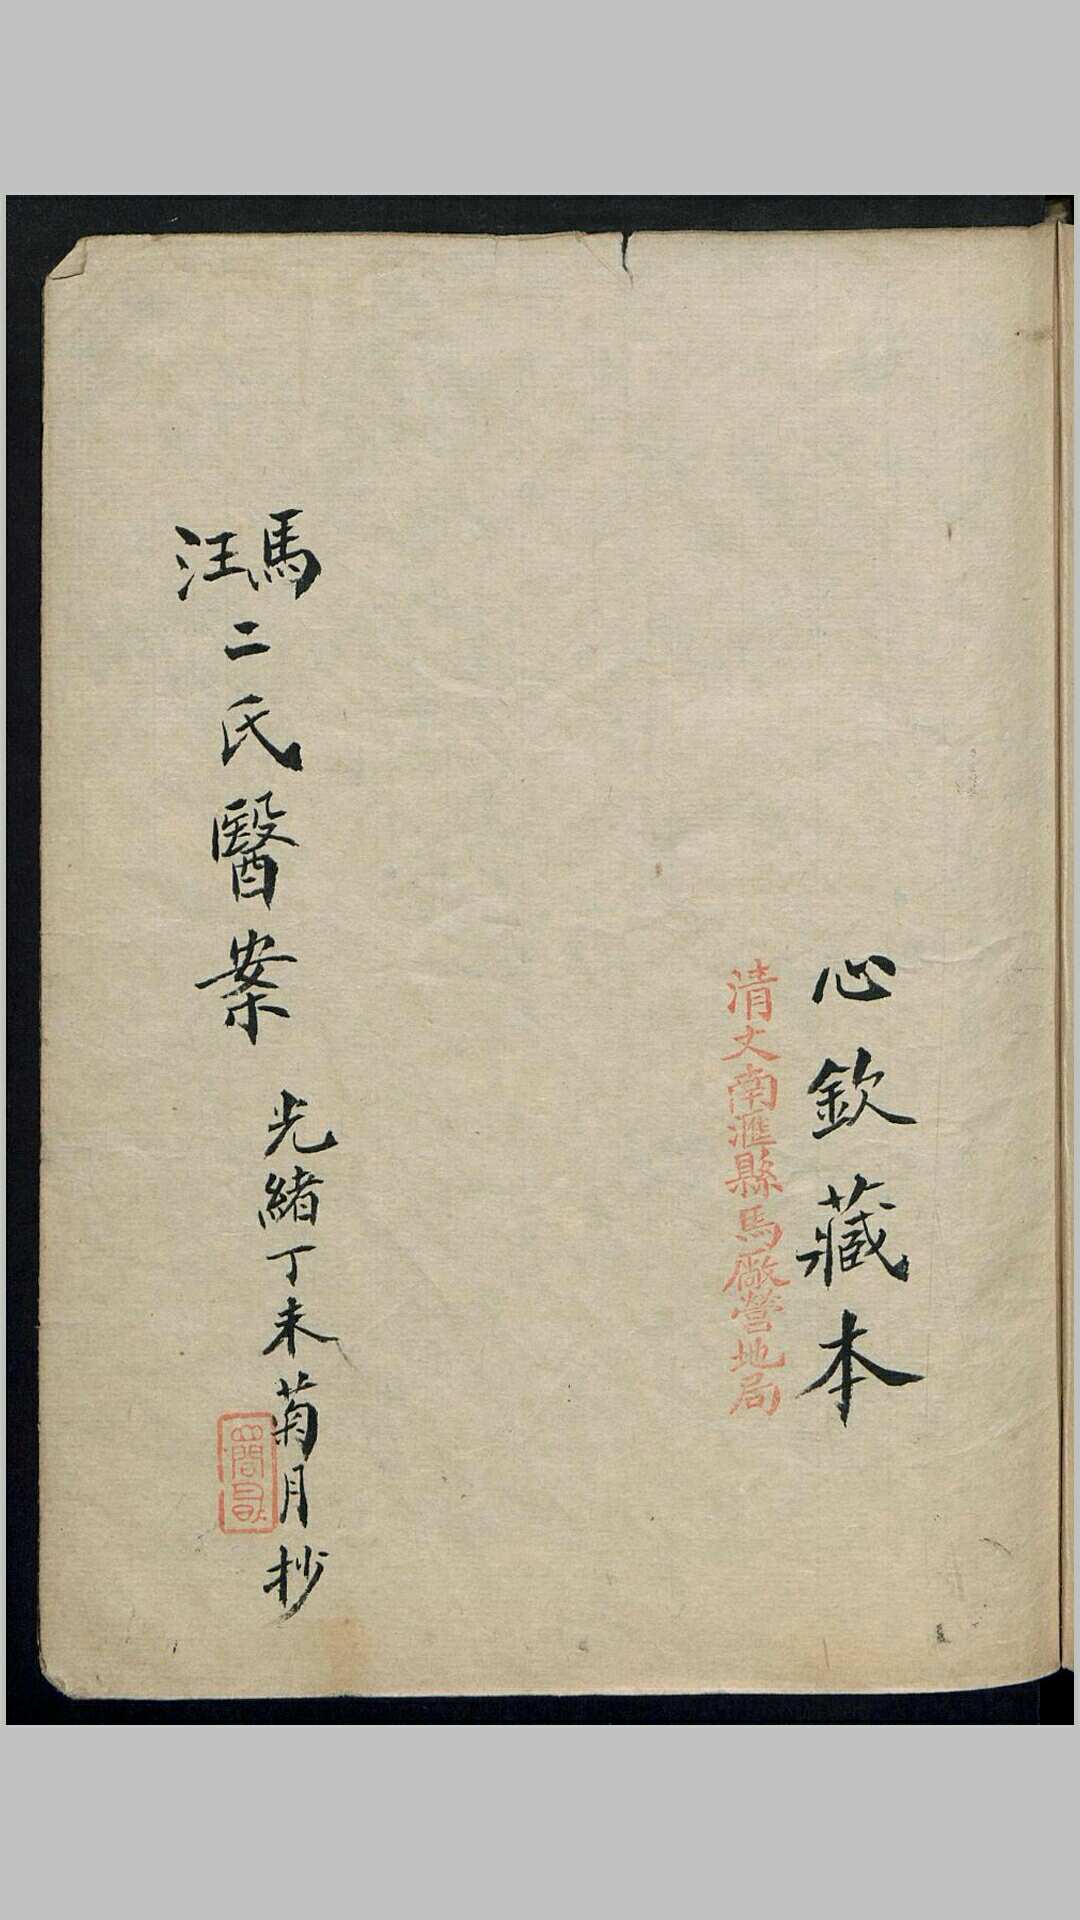 心欽藏本
清丈南滙縣馬厰營地局
馬汪二氏醫案
光緒丁未菊月抄